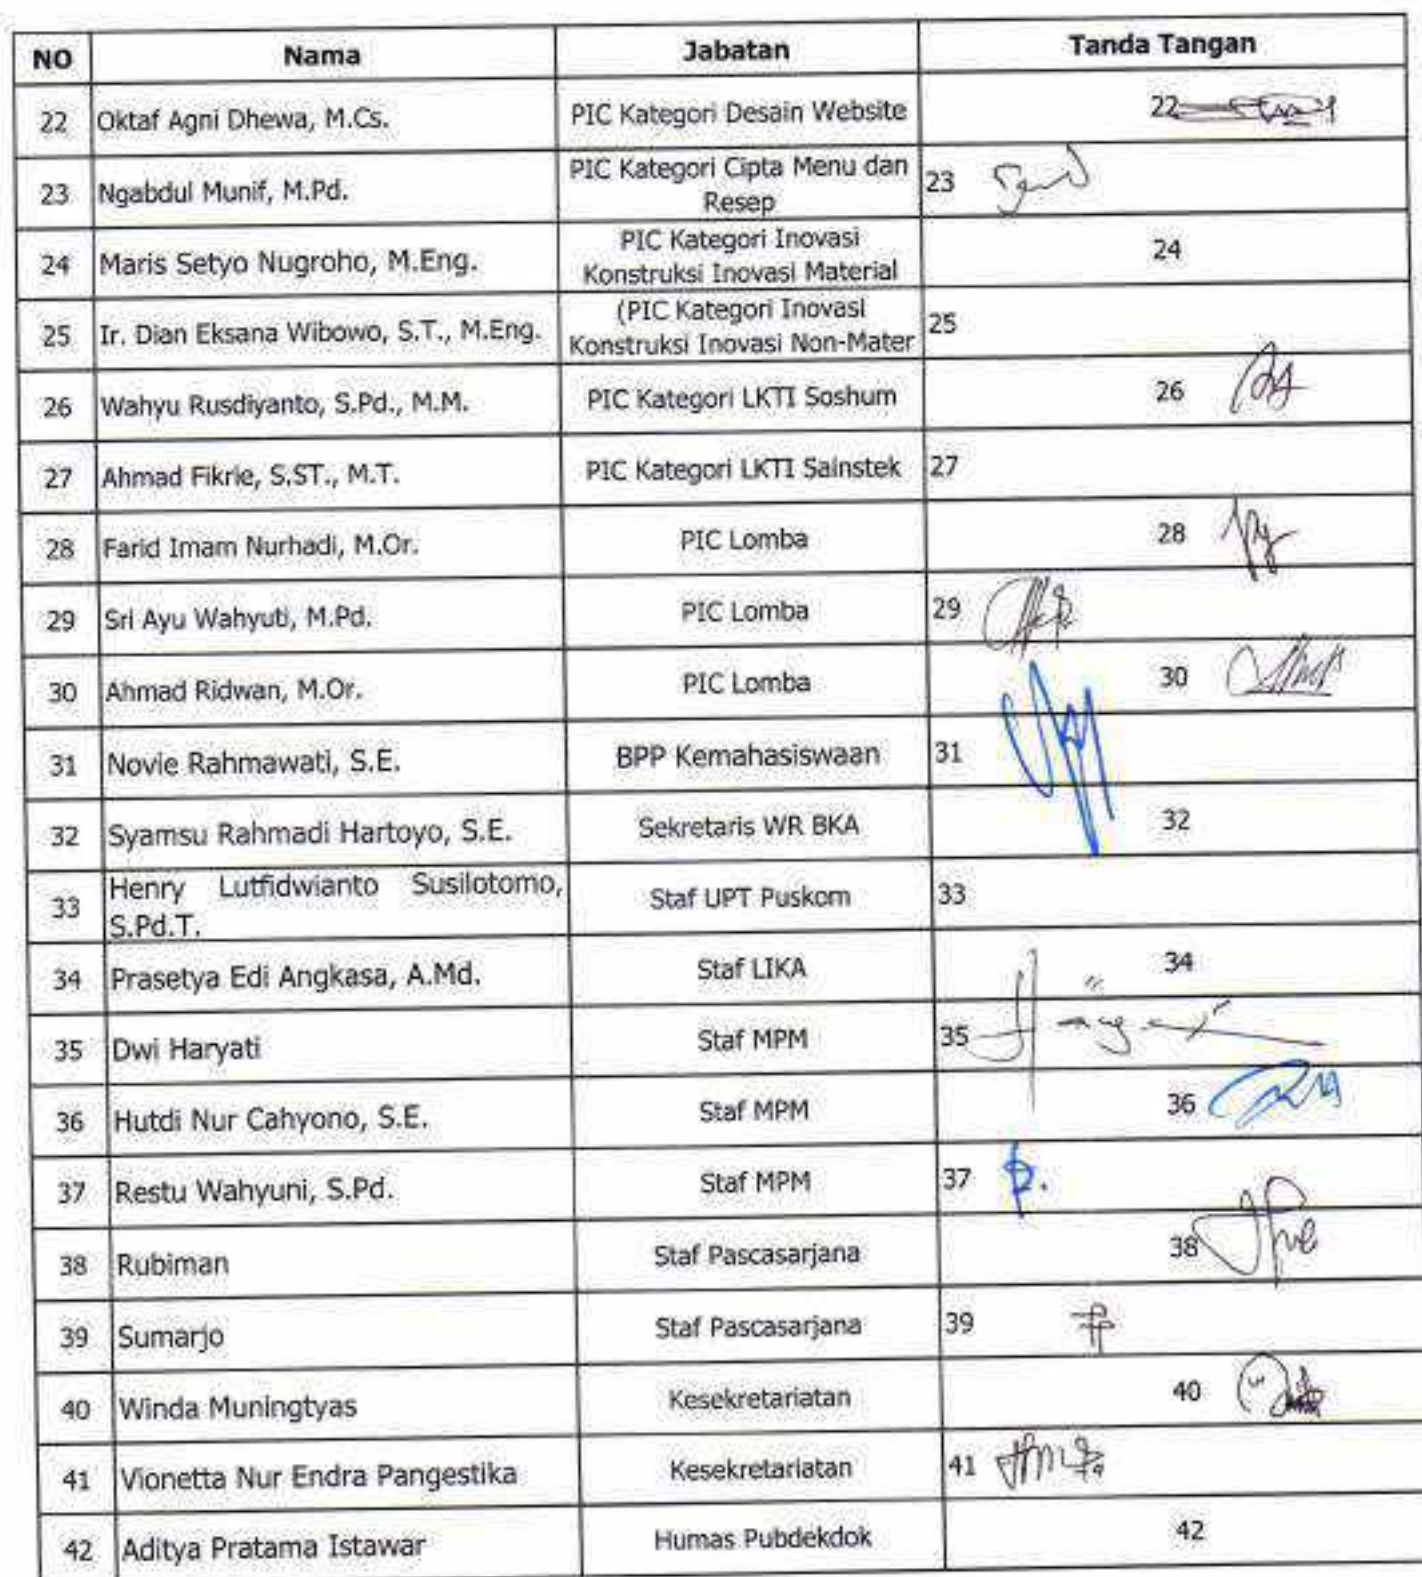 NO Nama Jabatan Tanda Tangan
22 Oktaf Agni Dhewa, M.Cs. PIC Kategori Desain Website 22
23 Ngabdul Munif, M.Pd. PIC Kategori Cipta Menu dan
Resep 23
24 Maris Setyo Nugroho, M.Eng. PIC Kategori Inovasi
Konstruksi Inovasi Material 24
25 Ir. Dian Eksana Wibowo, S.T., M.Eng. (PIC Kategori Inovasi
Konstruksi Inovasi Non-Mater 25
26 Wahyu Rusdiyanto, S.Pd., M.M. PIC Kategori LKTI Soshum 26
27 Ahmad Fikrie, S.ST., M.T. PIC Kategori LKTI Sainstek 27
28 Farid Imam Nurhadi, M.Or. PIC Lomba 28
29 Sri Ayu Wahyuti, M.Pd. PIC Lomba 29
30 Ahmad Ridwan, M.Or. PIC Lomba 30
31 Novie Rahmawati, S.E. BPP Kemahasiswaan 31
32 Syamsu Rahmadi Hartoyo, S.E. Sekretaris WR BKA 32
33 Henry Lutfidwianto Susilotomo,
S.Pd.T. Staf UPT Puskom 33
34 Prasetya Edi Angkasa, A.Md. Staf LIKA 34
35 Dwi Haryati Staf MPM 35
36 Hutdi Nur Cahyono, S.E. Staf MPM 36
37 Restu Wahyuni, S.Pd. Staf MPM 37
38 Rubiman Staf Pascasarjana 38
39 Sumarjo Staf Pascasarjana 39
40 Winda Muningtyas Kesekretariatan 40
41 Vionetta Nur Endra Pangestika Kesekretariatan 41
42 Aditya Pratama Istawar Humas Pubdekdok 42